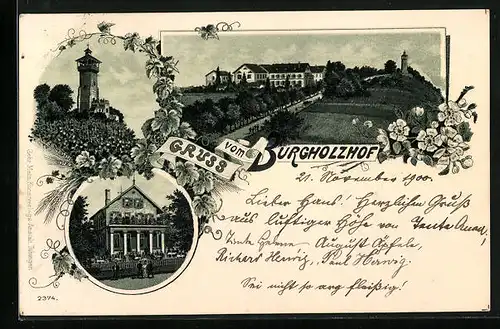 GRUSS vom BURGHOLZHOF
21. November 1900.
Lieber Hans! Herzlichen Gruß
aus luftiger Höhe von Tante Anna,
Tante August Äpfele,
Richard Herwig, Paul Herwig.
Sei nicht so arg fleißig!
2374.